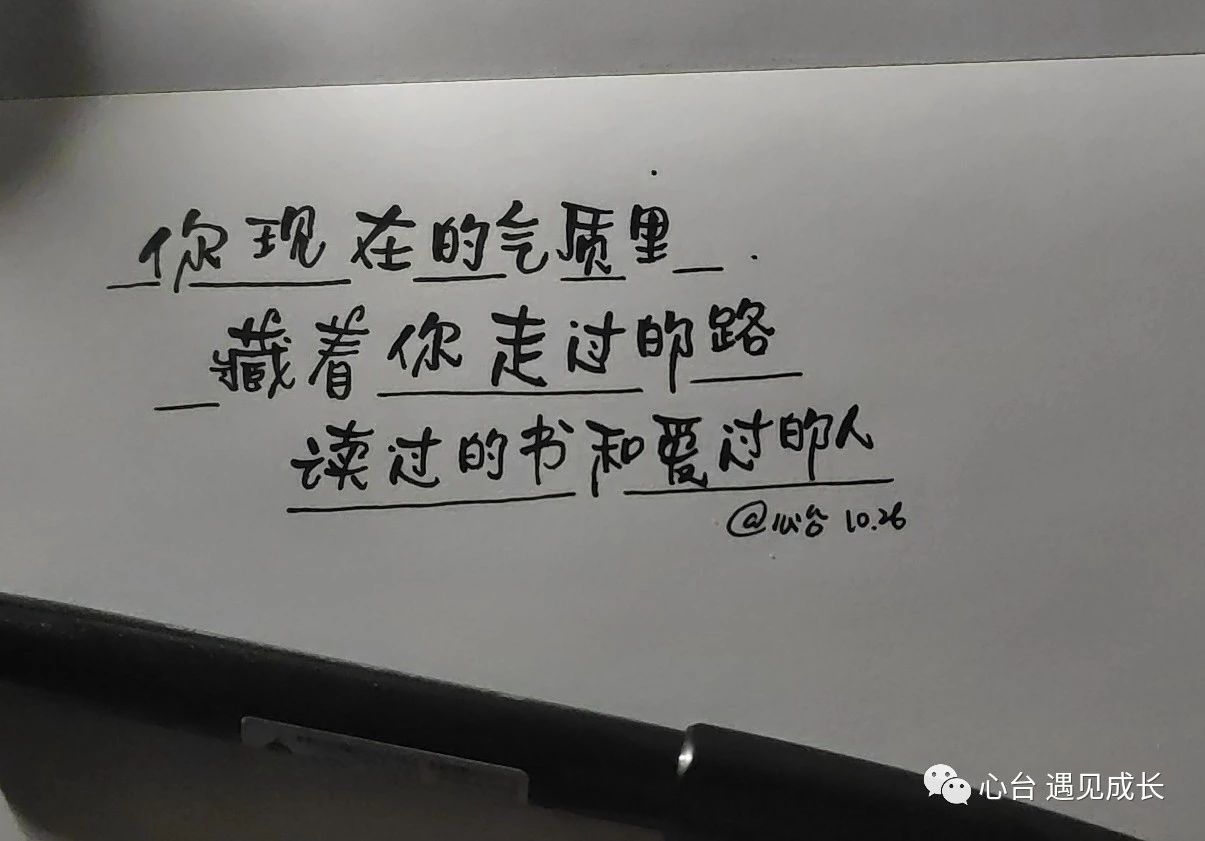 你现在的气质里
藏着你走过的路
读过的书和爱过的人
@心台 10.26
心台 遇见成长